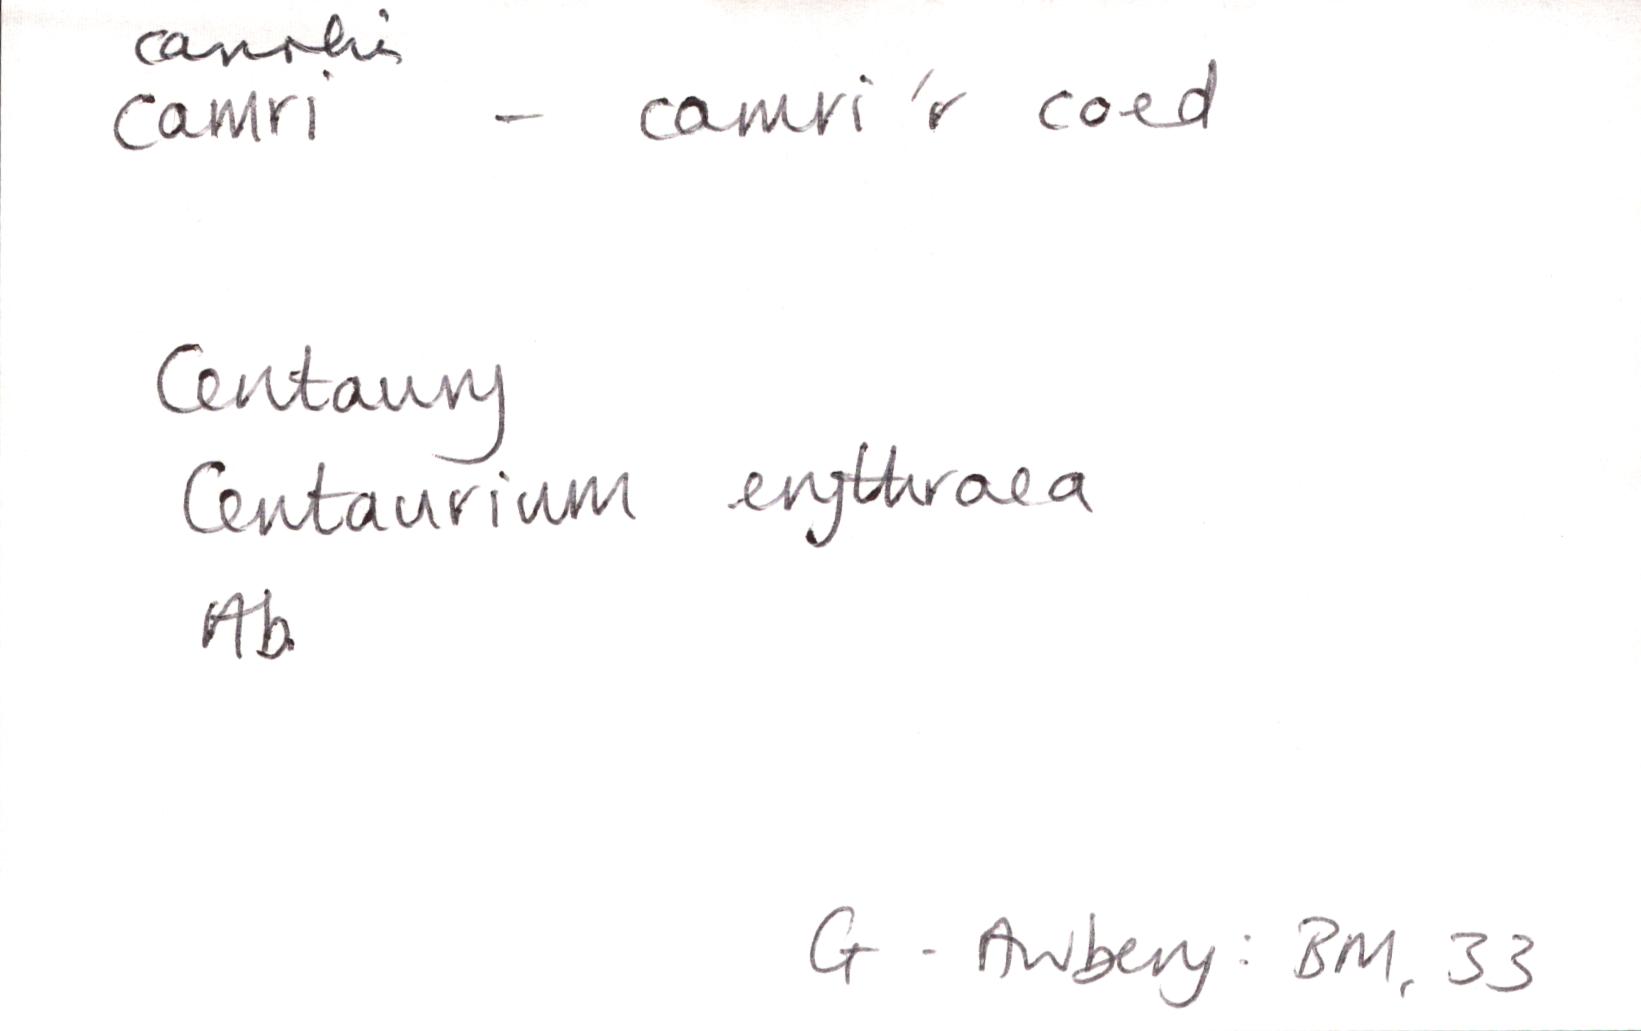 camri - camri 'r coed
Centaury
Centaurium erythraea
Ab.
G. Awbery: BM, 33